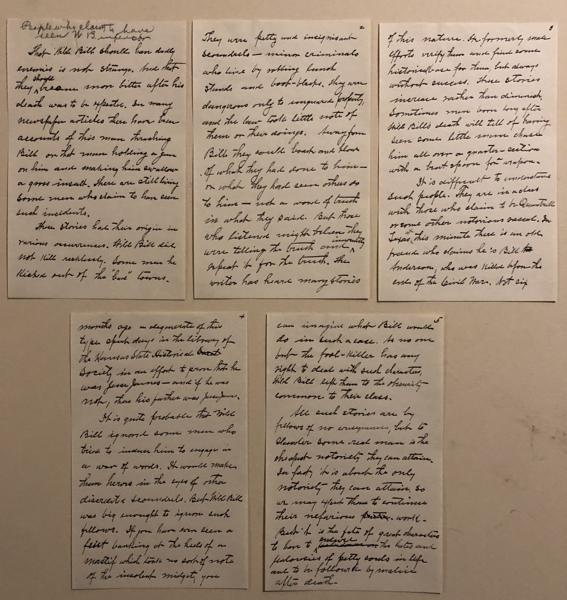 People who claim to have
seen W B inferior
That Wild Bill should have deadly
enemies is not strange. And that
they should become more bitter after his
death was to be expected. In many
newspaper articles there have been
accounts of this man thrashing
Bill or that man holding a gun
on him and making him swallow
a gross insult. There are still living
some men who claim to have seen
such incidents.
These stories had their origin in
various occurrences. Wild Bill did
not kill recklessly. Some men he
kicked out of the "bad" towns.
2
They were petty and insignificant
scoundrels — minor criminals
who live by robbing lunch
stands and boot-blacks. They are
dangerous only to unguarded property,
and the law took little note of
them or their doings. Away from
Bill they would boast and blow
of what they had done to him —
or what they had seen others do
to him — not a word of truth
in what they said. But those
who listened might believe they
were telling the truth and innocently
repeat it for the truth. The
writer has heard many stories
3
of this nature. He formerly made
efforts verify them and find some
historical base for them, but always
without success. These stories
increase rather than diminish.
Sometimes men born long after
Wild Bill's death will tell of having
seen some little man chase
him all over a quarter-section
with a bent spoon for weapon.
It is difficult to understand
such people. They are in a class
with those who claim to be Quantrill
or some other notorious rascal. In
Texas this minute there is an old
fraud who claims he is Bill
Anderson, who was killed before the
end of the Civil War. Not six
4
months ago a degenerate of this
type spent days in the library of
the Kansas State Historical
Society in an effort to prove that he
was Jesse James — and if he was
not, that his father was Jesse James.
It is quite probable that Wild
Bill ignored some men who
tried to induce him to engage in
a war of words. It would make
them heroes in the eyes of other
discredited scoundrels. But Wild Bill
was big enough to ignore such
fellows. If you have ever seen a
feist barking at the heels of a
mastiff which took no sort of note
of the insolent midget, you
5
can imagine what Bill would
do in such a case. As no one
but the fool-killer has any
right to deal with such characters,
Wild Bill left them to the obscurity
common to their class.
All such stories are by
fellows of no consequence, but to
slander some real man is the
cheapest notoriety they can attain.
In fact, it is about the only
notoriety they can attain. So
we may expect them to continue
their nefarious work.
But it is the fate of great characters
to have to endure the hates and
jealousies of petty souls in life
and to be followed by malice
after death.